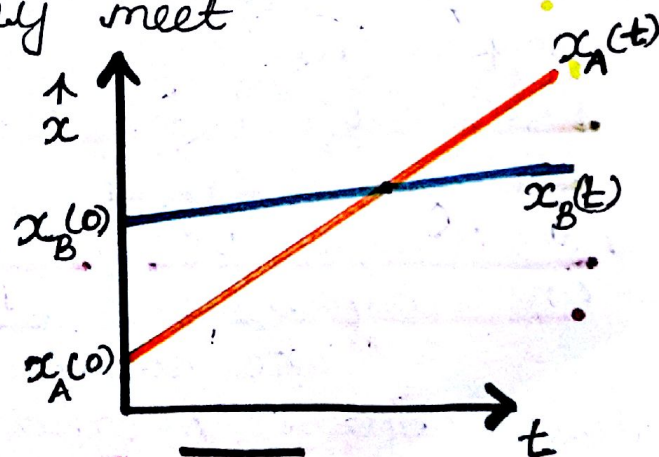 meet
x_A(t)
↑
x
x_B(0)
x_B(t)
x_A(0)
t